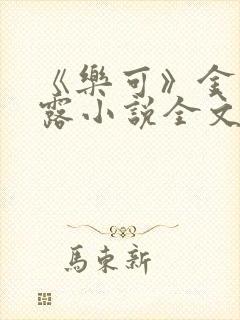 《樂可》金
露小說全文
馬東新